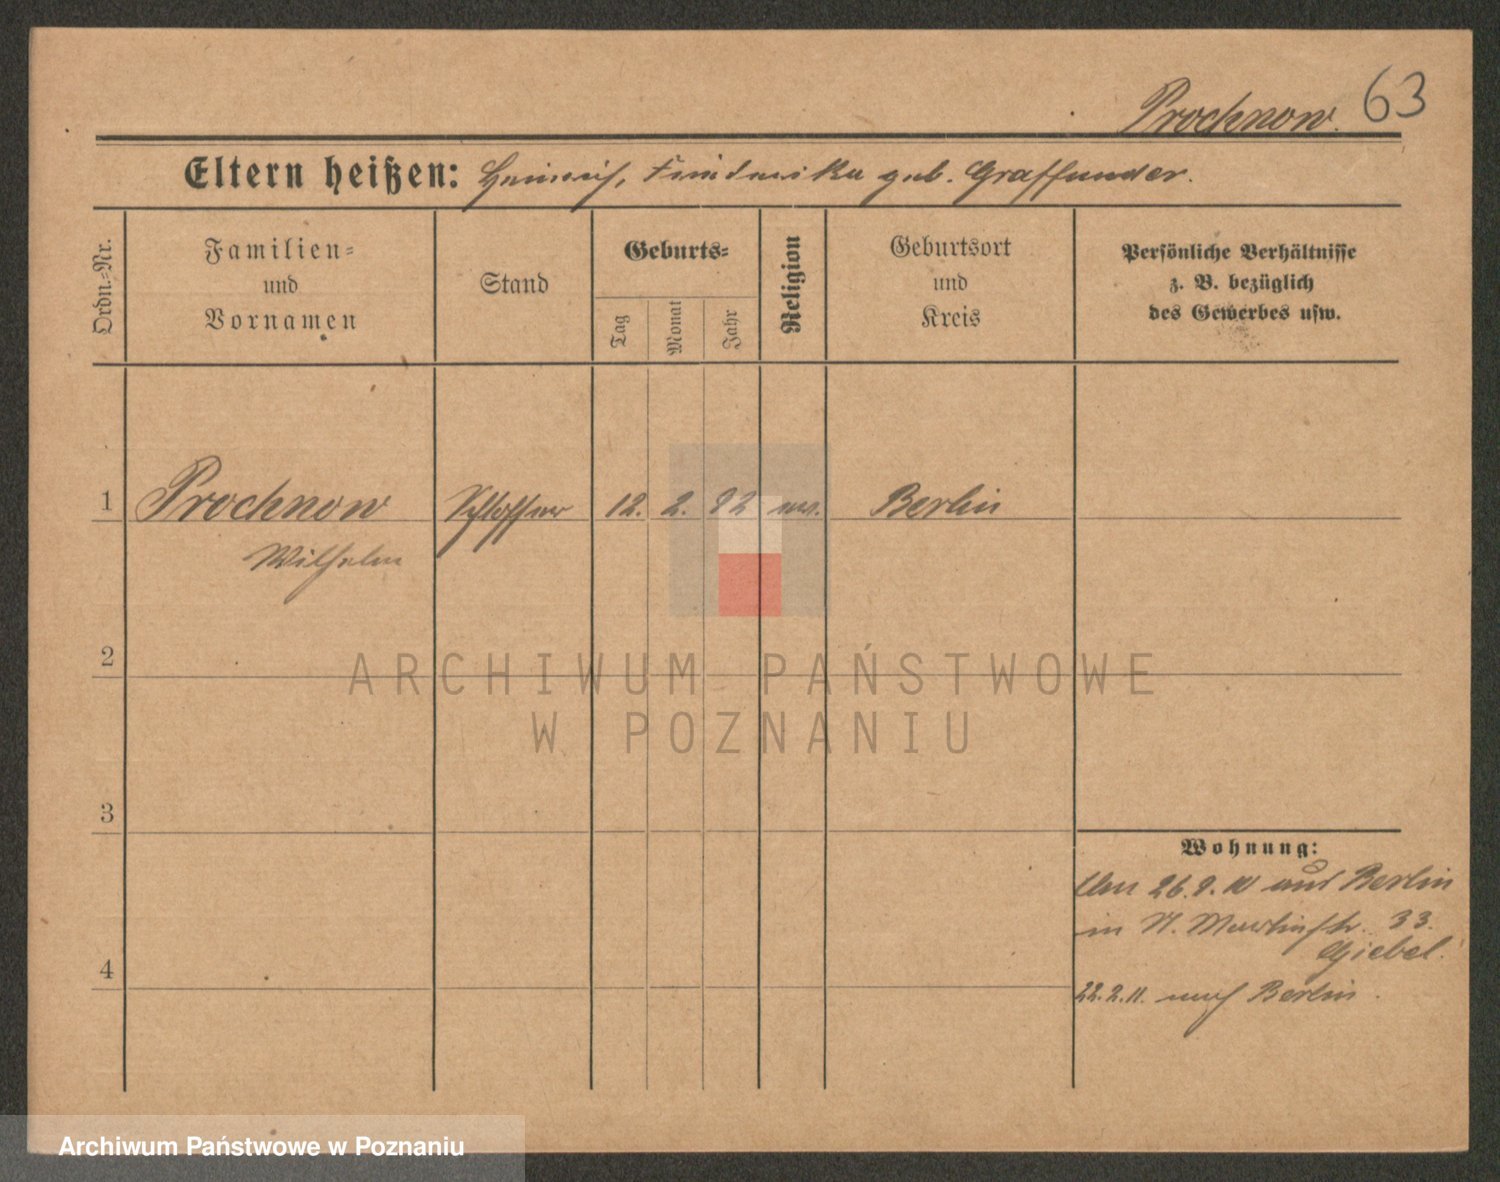 Prochnow. 63
Eltern heißen: Heinrich, Friederika geb. Graffunder.
Ordn.-Nr.
Familien-
und
Vornamen
Stand
Geburts-
Tag
Monat
Jahr
Religion
Geburtsort
und
Kreis
Persönliche Verhältnisse
z. B. bezüglich
des Gewerbes usw.
1 Prochnow Schlosser 12. 2. 92 ev. Berlin
Wilhelm
2
ARCHIWUM PAŃSTWOWE
W POZNANIU
3
Wohnung:
26.9.10 aus Berlin
in St. Martinstr. 33.
Giebel.
4
22.2.11. nach Berlin.
Archiwum Państwowe w Poznaniu